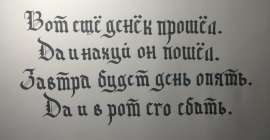 Вот ещё денёк прошёл.
Да и нахуй он пошёл.
Завтра будет день опять.
Да и в рот его ебать.